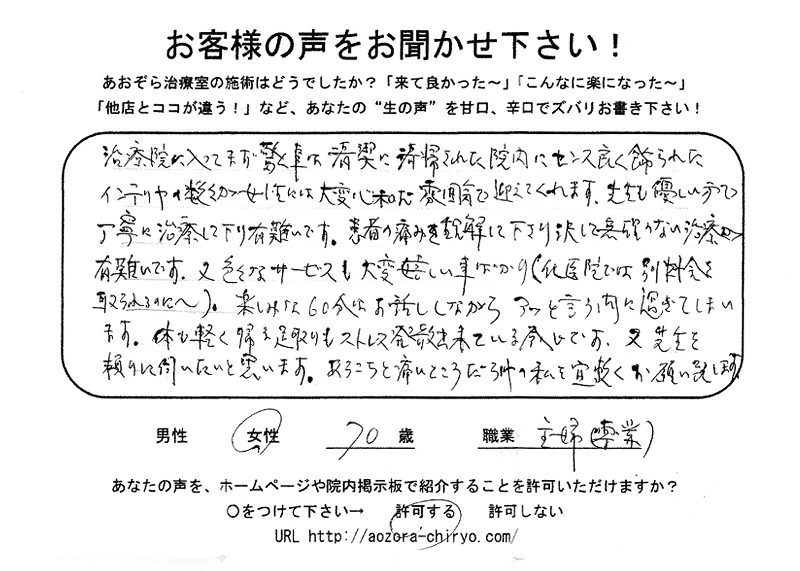 お客様の声をお聞かせ下さい！
あおぞら治療室の施術はどうでしたか？「来て良かった～」「こんなに楽になった～」
「他店とココが違う！」など、あなたの“生の声”を甘口、辛口でズバリお書き下さい！
治療院に入ってまず驚く事は清潔に清掃された院内にセンス良く飾られた
インテリヤの数々が女性には大変心和む雰囲気で迎えてくれます。先生も優しい
丁寧に治療して下り有難いです。患者の痛みを理解して下さり決して無理のない治療が
有難いです。又色々なサービスも大変嬉しい事ばかり（他医院では別料金を
取られるのに～）。楽しみな60分はお話ししながらアッと言う間に過ぎてしまい
ます。体も軽く帰る足取りもストレス発散出来ている喜びです。又先生を
頼りに伺いたいと思います。あちこちと痛いところだらけの私を宜敷くお願い致します
男性 女性 70 歳 職業 主婦（専業）
あなたの声を、ホームページや院内掲示板で紹介することを許可いただけますか？
〇をつけて下さい→ 許可する 許可しない
URL http://aozora-chiryo.com/